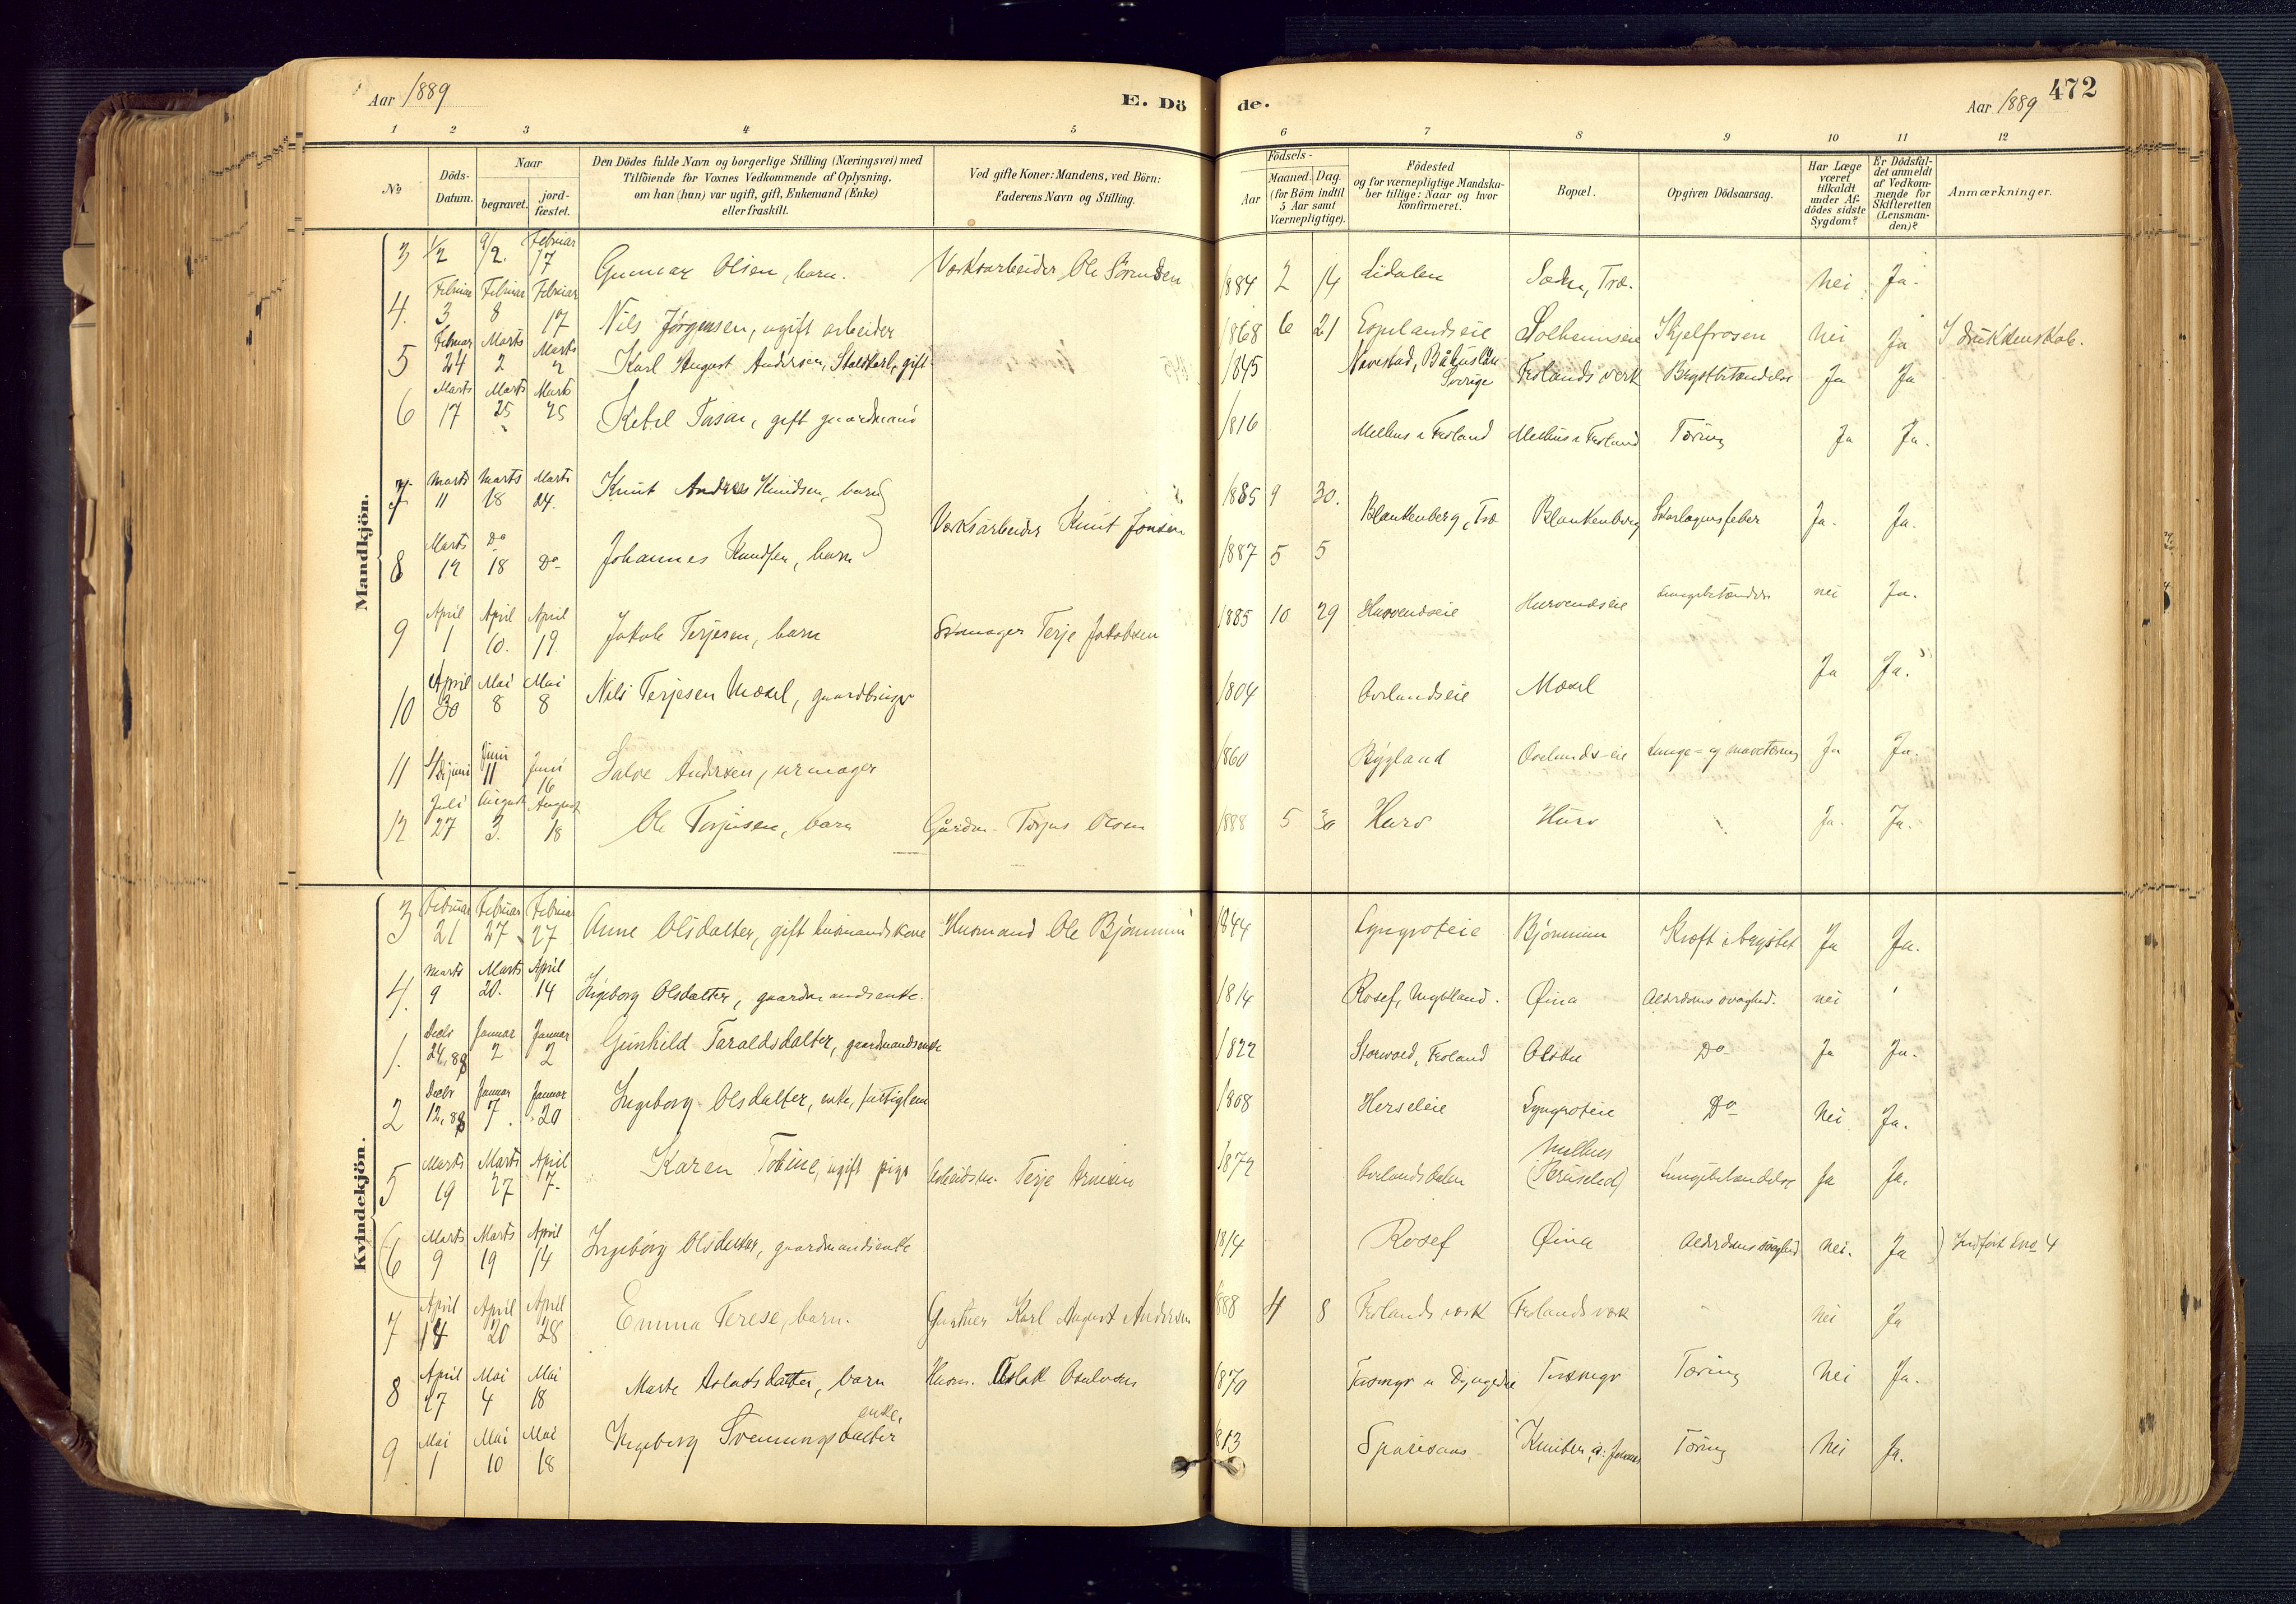 Aar 1889 E. Dö de. Aar 1889 472
1 2 3 4 5 6 7 8 9 10 11 12
№ Döds-Datum. Naar begravet. jord-fæstet. Den Dödes fulde Navn og borgerlige Stilling (Næringsvei) med Tilföiende for Voxnes Vedkommende af Oplysning, om han (hun) var ugift, gift, Enkemand (Enke) eller fraskilt. Ved gifte Koner: Mandens, ved Börn: Faderens Navn og Stilling. Födsels- Aar Maaned. Dag. (for Börn indtil 5 Aar samt Værnepligtige). Födested og for værnepligtige Mandska-ber tillige: Naar og hvor konfirmeret. Bopæl. Opgiven Dödsaarsag. Har Læge været tilkaldt under Af-dödes sidste Sygdom? Er Dödsfal-det anmeldt af Vedkom-mende for Skifteretten (Lensman-den)? Anmærkninger.
Mandkjön.
3 1/2 9/2. Februar 17 Gunnar Olsen, barn. Værksarbeider Ole Sørensen 1884 2 14 Lidalen Sæden, Træ. Nei Ja.
4. Februar 3 Februar 8 Februar 17 Nils Jørgensen, ugift arbeider 1868 6 21 Espelandseie Solheimseie Ihjelfrosen Nei Ja I drukkenskab.
5 Februar 24 Marts 2 Marts 2 Karl August Andersen, Staldkarl, gift. 1845 Navestad, Båhuslän Sverige Frolands værk Brystbetændelse Ja Ja
6 Marts 17 Marts 25 Marts 25 Ketil Tarsen, gift gaardmand 1816 Melhus i Froland Melhus i Froland Tæring Ja Ja.
7. Marts 11 Marts 18 Marts 24. Knut Andreas Knudsen, barn Værksarbeider Knut Jonsen 1885 9 30. Blankenberg, Træ Blankenberg Skarlagensfeber Ja. Ja.
8 Marts 12 Do 18 Do Johannes Knudsen, barn 1887 5 5
9 April 1 April 10. April 19 Jakob Terjesen, barn Skomager Terje Jakobsen 1885 10 29 Hurvendseie Hurvendseie Lungebetændelse nei Ja.
10 April 30 Mai 8 Mai 8 Nils Terjesen Moxel, gaardbruger 1804 Ovelandseie Moxel Ja Ja.
11 4/5 juni Juni 11 Juni 16 Salve Andersen, urmager 1860 Bygland Ovelands-eie Lunge- og mavetæring Ja Ja.
12 Juli 27 August 3. August 18 Ole Torjusen, barn Gårdm. Torjus Olsen 1888 5 30 Hurv Hurv Ja. Ja.
Kvindekjön.
3 Februar 21 Februar 27 Februar 27 Anne Olsdatter, gift husmandskone Husmand Ole Bjønnmin 1844 Lyngroteie Bjønnmin Kræft i brystet Ja Ja.
4. Marts 9 Marts 20. April 14 Ingeborg Olsdatter, gaardmandsenke. 1814 Rosef, Mykland. Øina Alderdoms svaghed. nei
1. Decbr 24, 88 Januar 2 Januar 2 Gunhild Taraldsdatter, gaardmandsenke 1822 Storvold, Froland Olsbu Do Ja Ja.
2 Decbr 12, 88 Januar 7. Januar 20 Ingeborg Olsdatter, enke, fattiglem 1808 Herseleie Lyngroteie Do Nei Ja.
5 Marts 19 Marts 27 April 7. Karen Tobine, ugift pige Arbeidsm. Terje Arnesen 1872 Ovelandsdalen Melhus Lungebetændelse Ja Ja.
6 Marts 9 Marts 19 April 14 Ingeborg Olsdatter, gaardmandsenke 1814 Rosef Øina Alderdoms svaghed nei. Ja Indført No 4
7 April 14 April 20 April 28 Emma Terese, barn. Gartner Karl August Andersen 1888 4 8 Frolands værk Frolands værk nei Ja
8 April 27 Mai 4 Mai 18 Marte Aslaksdatter, barn Husm. Aslak Osulvsen 1870 Tæring Nei Ja.
9 Mai 1 Mai 10 Mai 18 Ingeborg Svenningsdatter enke, 1813 Tæring Nei Ja.